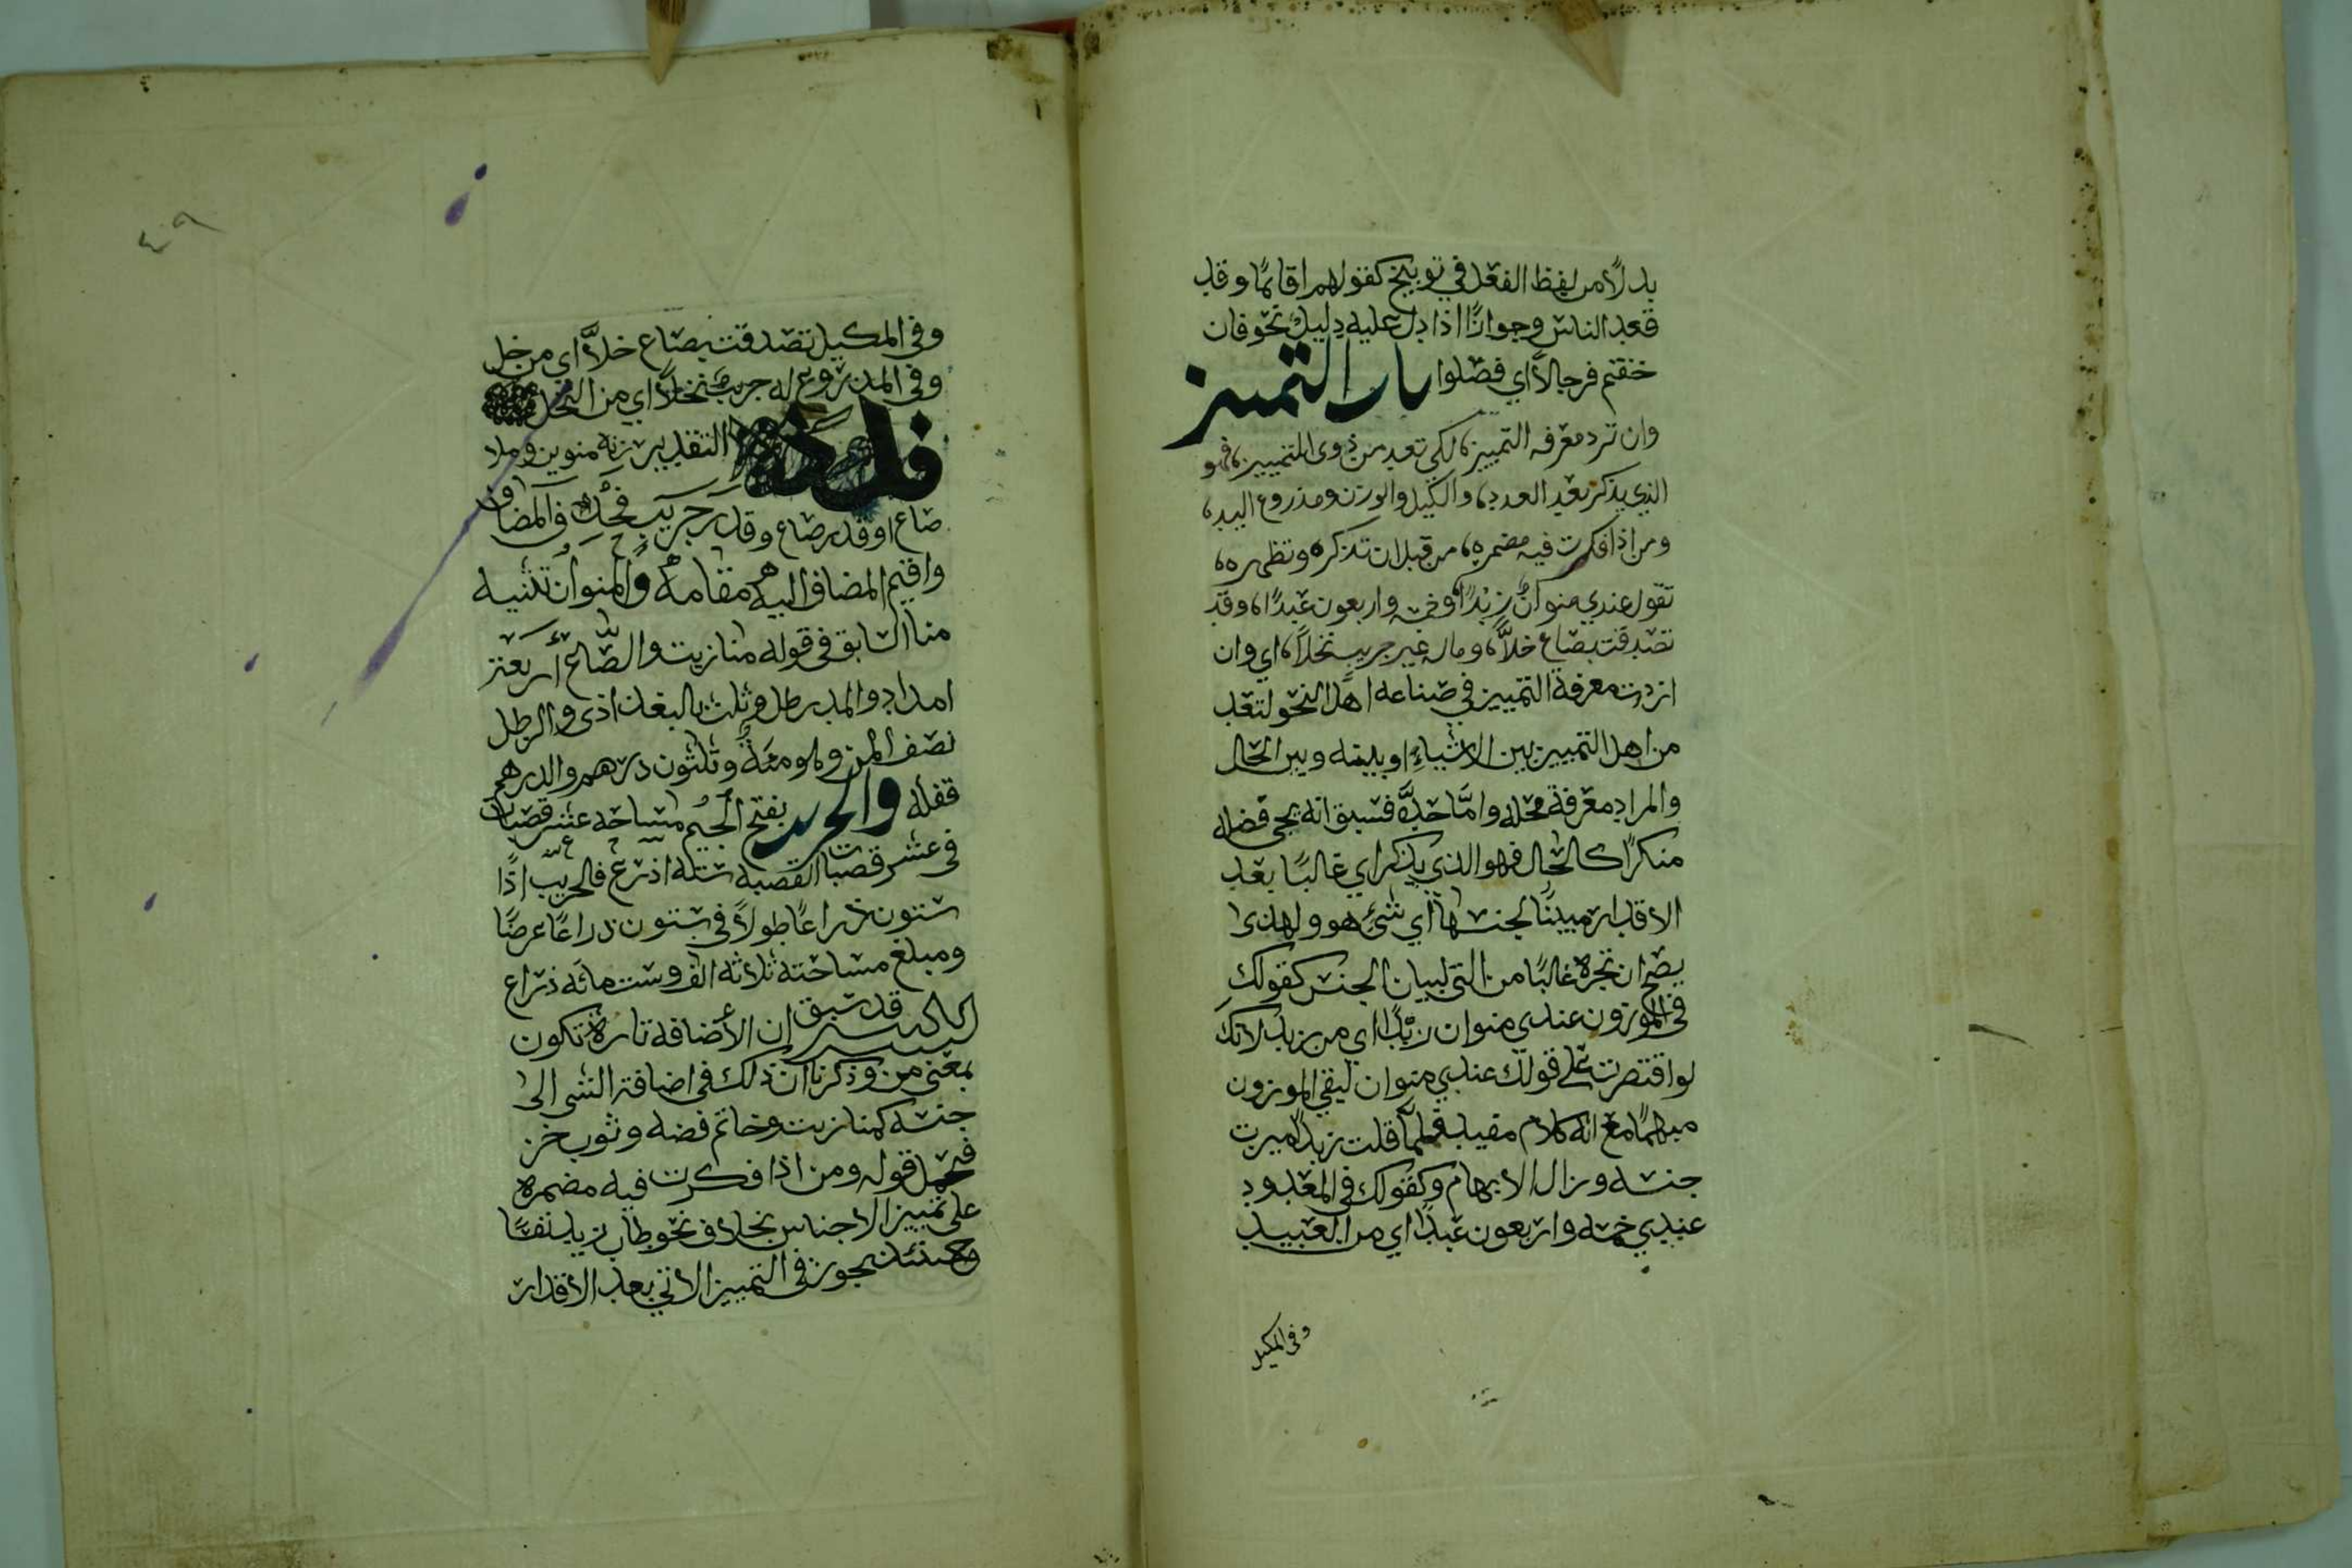 بدلاً من لفظ الفعل في توبيخ كقولهم اقائمًا وقد
قعد الناس وجوازًا اذا دل عليه دليل نحو فان
خفتم فرجالاً اي فصلوا باب التمييز
وان ترد معرفه التمييز، لكي تعد من ذوى التمييز، فهو
الذي يذكر بعد العدد، والكيل والوزن ومذروع اليد،
ومن اذا فكرت فيه مضمره، من قبل ان تذكره وتظهره،
تقول عندي منوان زبدًا، وخمسه واربعون عبدًا، وقد
تصدقت بصاع خلاًّ، وماله غير جريب نخلاً، اي وان
اردت معرفة التمييز في صناعه اهل النحو لتعد
من اهل التمييز بين الاشياءِ او بينه وبين الحال
والمراد معرفة محله وامَّا حدّه فسبق انه يجي فضله
منكرًا كالحال فهو الذي يذكر اي غالبًا بعد
الاقدار مبينًا لجنسها اي شئ هو ولهذا
يصح ان تجره غالبًا من التي لبيان الجنس كقولك
فى الموزون عندي منوان زبدًا اي من زبد لانك
لو اقتصرت على قولك عندي منوان لبقي الموزون
مبهمًا مع انه كلام مفيد فلما قلت زبدًا ميزت
جنسه وزال الابهام وكقولك في المعدود
عندي خمسه واربعون عبدًا اي من العبيد
وفى المكيل
٤٩
وفى المكيل تصدقت بصاع خلاًّ اي من خل
وفى المذروع له جريب نخلاً اي من النخل
فائدة التقدير زنه منوين وملا
صاع او قدر صاع وقدر جريب فحذف المضاف
واقيم المضاف اليه مقامه والمنوان تثنيه
منا السابق في قوله منا زيت والصّاع أربعة
امداد والمد رطل وثلث بالبغدادى والرطل
نصف المن وهو مئة وثلثون درهم والدرهم
قفله والجريب بفتح الجيم مساحه عشر قصبات
في عشر قصبات القصبه سته اذرع فالجريب اذًا
ستون ذراعًا طولاً في ستون ذراعًا عرضًا
ومبلغ مساحته ثلاثه الف وست مائه ذراع
بالكسر قد سبق ان الأضافه تارة تكون
بمعنى من وذكرنا ان ذلك في اضافة الشى الى
جنسه كمنا زيت وخاتم فضه وثوب خز
فيحمل قوله ومن اذا فكرت فيه مضمره
على تمييز الاجناس بخلاف نحو طاب زيد نفسًا
وحينئذ يجوز في التمييز الاتي بعد الاقدار